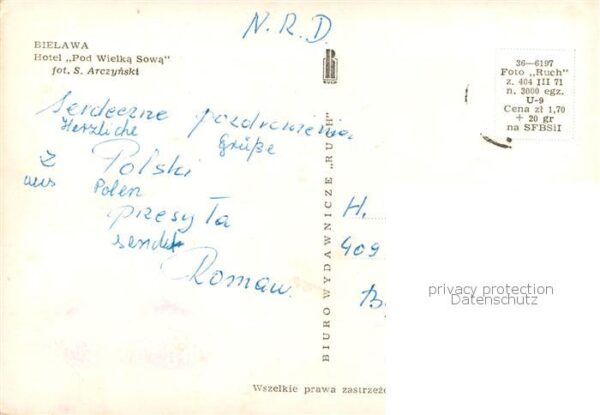 N.R.D.
BIELAWA
Hotel „Pod Wielką Sową"
fot. S. Arczyński
36—6197
Foto „Ruch"
z. 404 III 71
n. 3000 egz.
U-9
Cena zł 1,70
+ 20 gr
na SFBSiI
Serdeczne pozdrowienia
Herzliche Grüße
z Polski
aus Polen
przesyła
sendet
Roman.
BIURO WYDAWNICZE „RUCH"
H.
409
B
privacy protection
Datenschutz
Wszelkie prawa zastrzeże